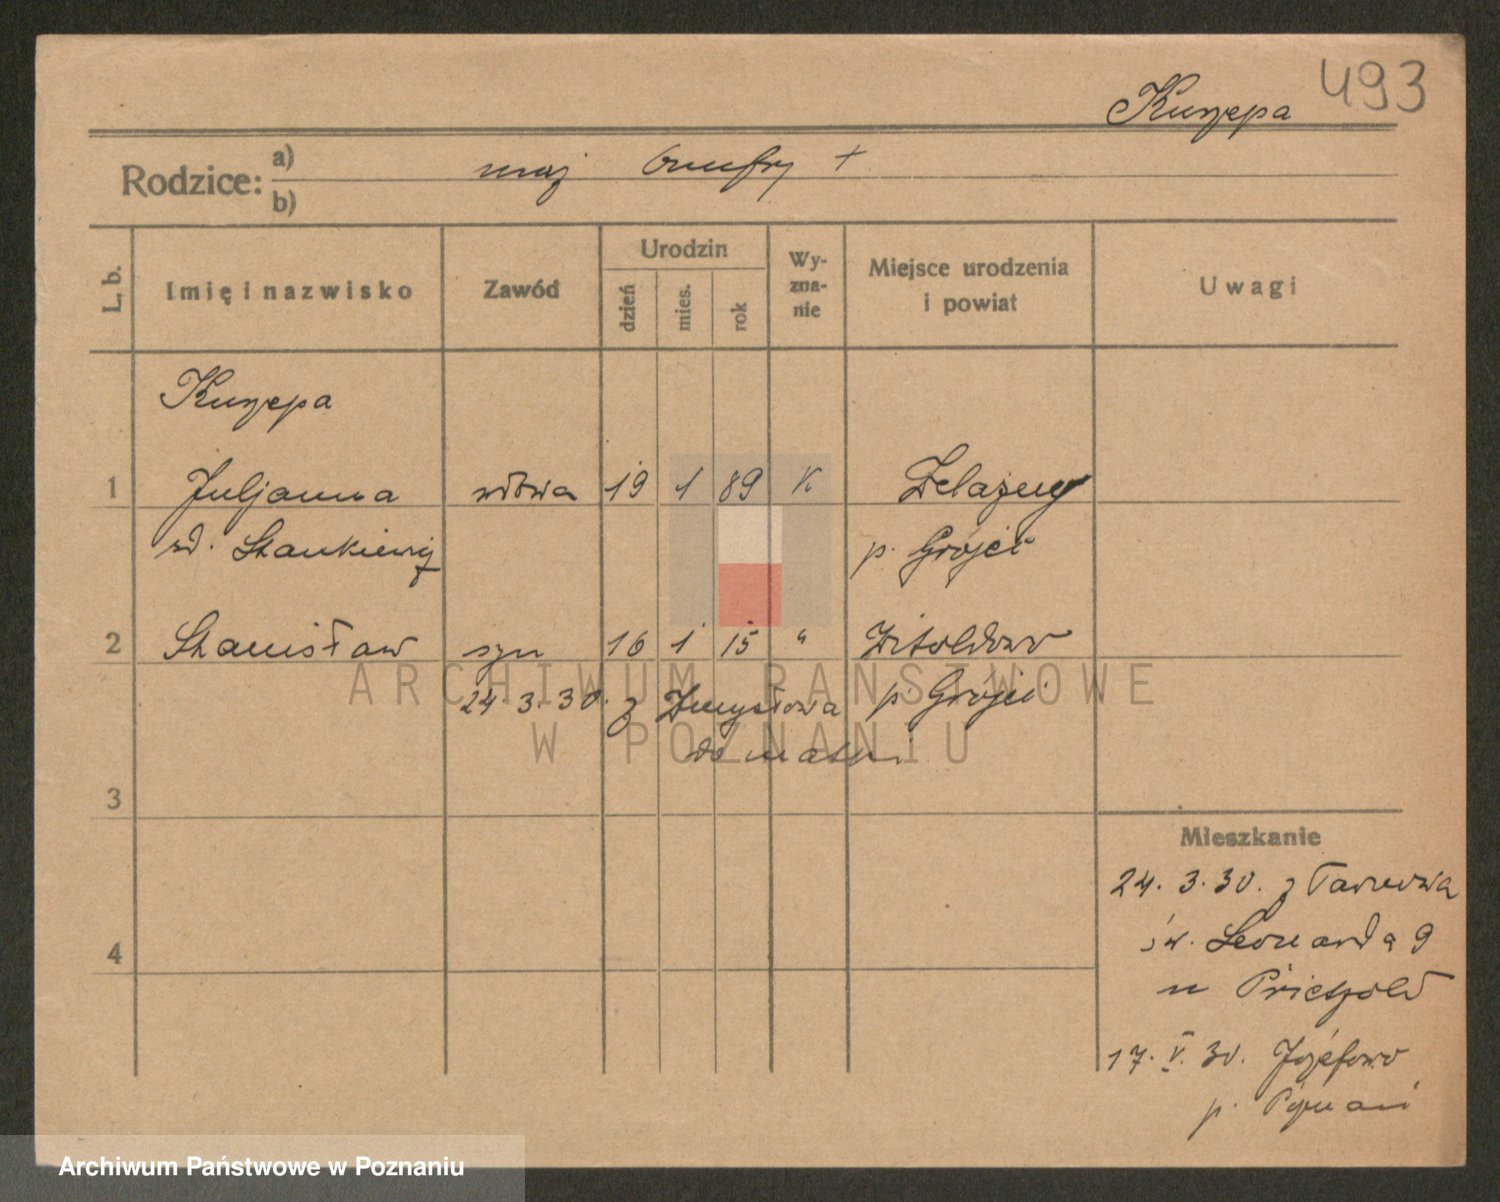 493
Kurzepa
Rodzice: a) mąż Onufry +
b)
L. b.
Imię i nazwisko
Zawód
Urodzin
dzień
mies.
rok
Wy-
zna-
nie
Miejsce urodzenia
i powiat
Uwagi
Kurzepa
1 Juljanna wdowa 19 1 89 K
rd. Stankiewicz p. Grójec
2 Stanisław syn 16 1 15 " Witoldowo
24.3.30. z Zmysłowa p. Grójec
do matki
3
4
Mieszkanie
24. 3. 30. z
św. Leonarda 9
u
17. V. 30. Józefowo
p. Poznań
ARCHIWUM PAŃSTWOWE
W POZNANIU
Archiwum Państwowe w Poznaniu